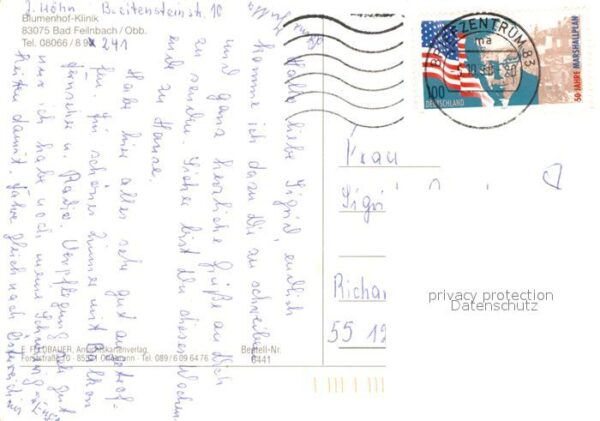 J. Höhn Breitensteinstr. 10
Blumenhof-Klinik
83075 Bad Feilnbach / Obb.
Tel. 08066 / 8 241
Hallo liebe Sigrid, endlich
komme ich dazu Dir zu schreiben
und ganz herzliche Grüße an Dich
zu senden. Sicher bist Du diese Wochen
zu Hause.
Habe hier alles sehr gut
Ein schönes Zimmer mit Balkon
Fernseher u. Radio. Verpflegung gut
nur ich habe noch meine
damit. Fahre gleich nach Österreich
E. FELDBAUER, Ansichtskartenverlag,
Forststraße 85521 Ottobrunn · Tel. 089/6 09 64 76
Bestell-Nr.
6441
BRIEFZENTRUM 83
ma
100
DEUTSCHLAND
50 JAHRE MARSHALLPLAN
Frau
Sigri
Richar
55 12
privacy protection
Datenschutz